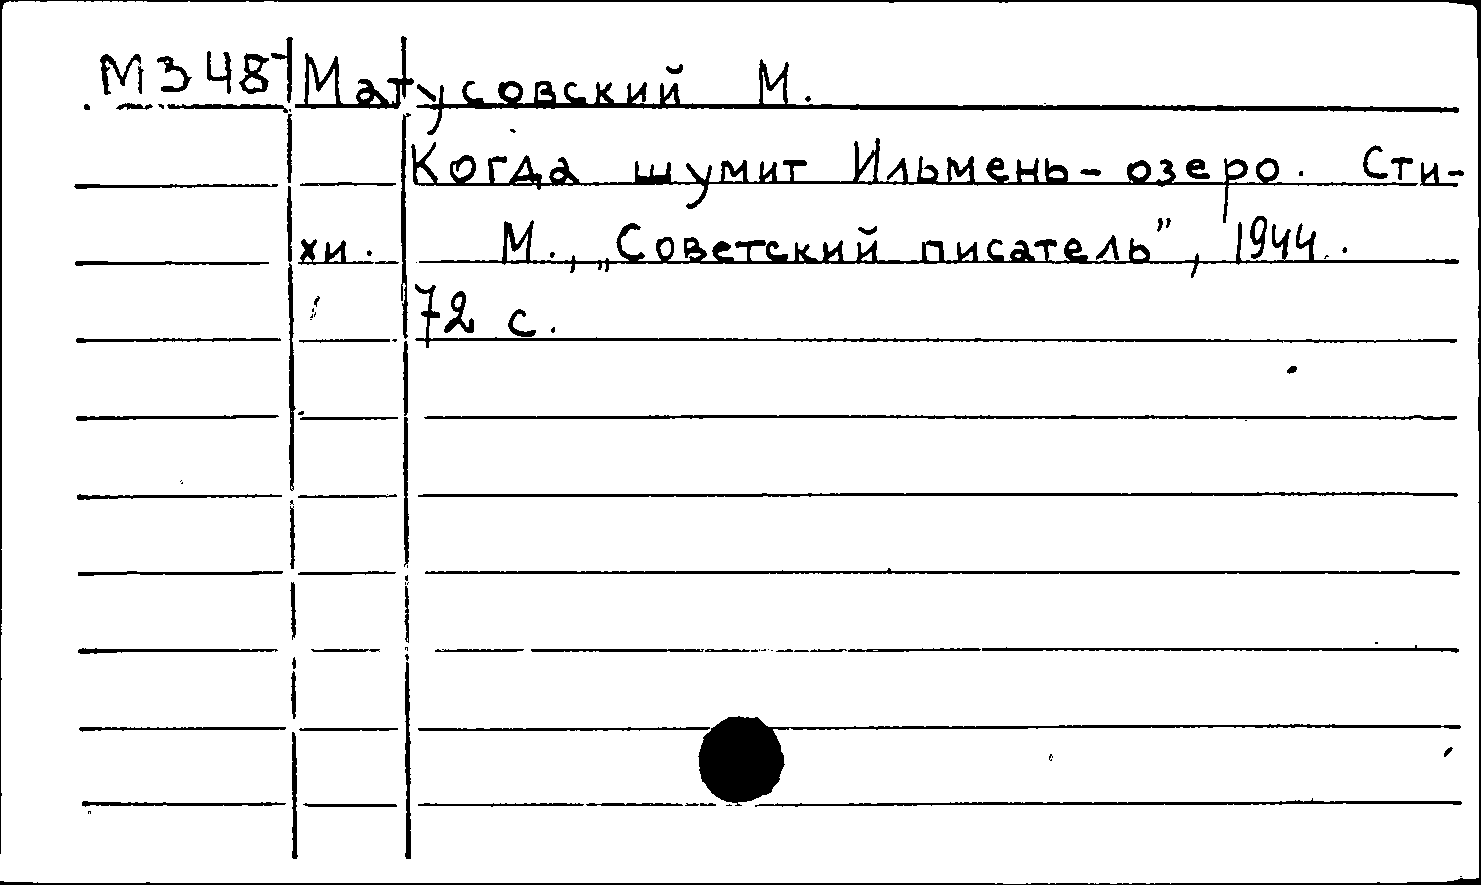 М348 Матусовский М.
Когда шумит Ильмень-озеро. Сти-
хи. М., „Советский писатель”, 1944.
72 с.